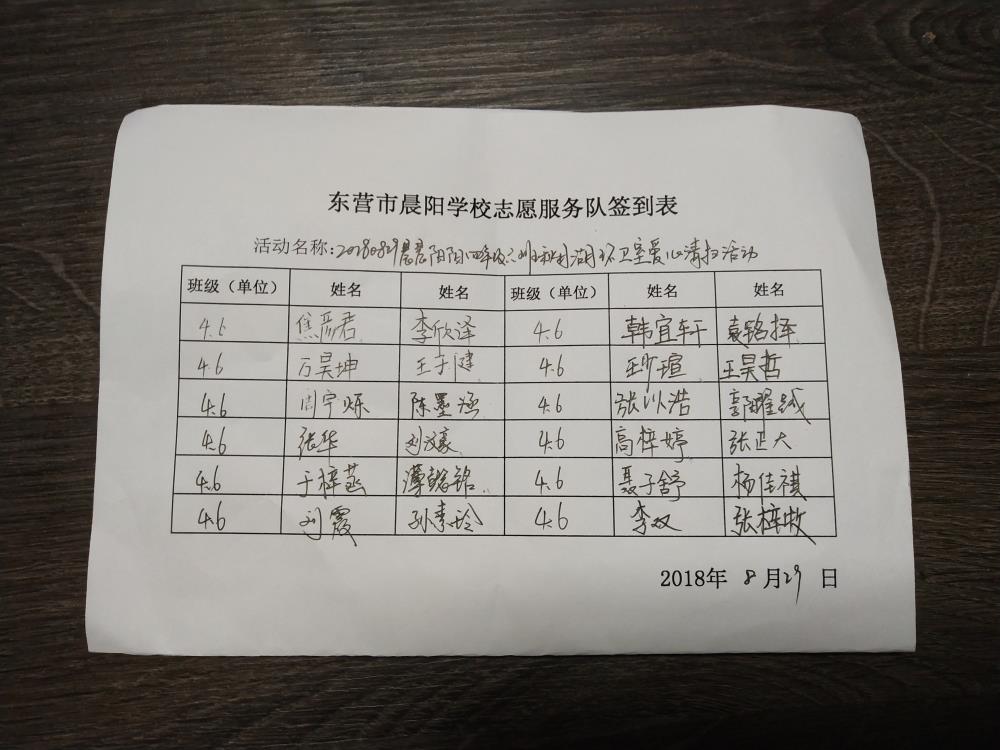 东营市晨阳学校志愿服务队签到表
活动名称:20180829晨晨阳阳四年级六班明月湖环卫室爱心清扫活动
班级（单位） 姓名 姓名 班级（单位） 姓名 姓名
4.6 焦彦君 李欣泽 4.6 韩宜轩 袁铭择
4.6 万昊坤 王子健 4.6 王昊哲
4.6 周宁烁 陈墨涵 4.6 张以浩 郭耀绒
4.6 张华 刘汉豪 4.6 高梓婷 张正大
4.6 于梓菡 薄懿铭 4.6 聂子舒 杨佳祺
4.6 刘霞 孙素玲 4.6 李双 张梓牧
2018年 8 月29 日